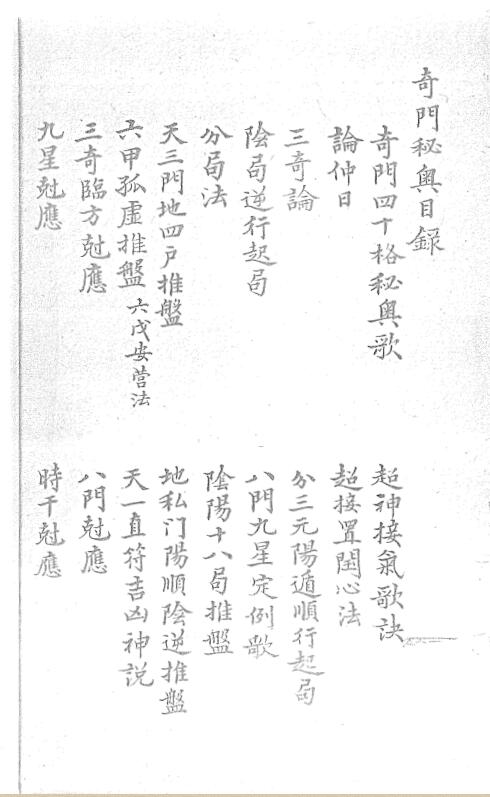 奇門秘奧目録
奇門四十格秘奧歌
超神接氣歌訣
論仲日
超接置閏心法
三奇論
分三元陽遁順行起局
陰局逆行起局
八門九星定例歌
分局法
陰陽十八局推盤
天三門地四户推盤
地私门陽順陰逆推盤
六甲孤虛推盤 六戊安营法
天一直符吉凶神説
三奇臨方尅應
八門尅應
九星尅應
時干尅應